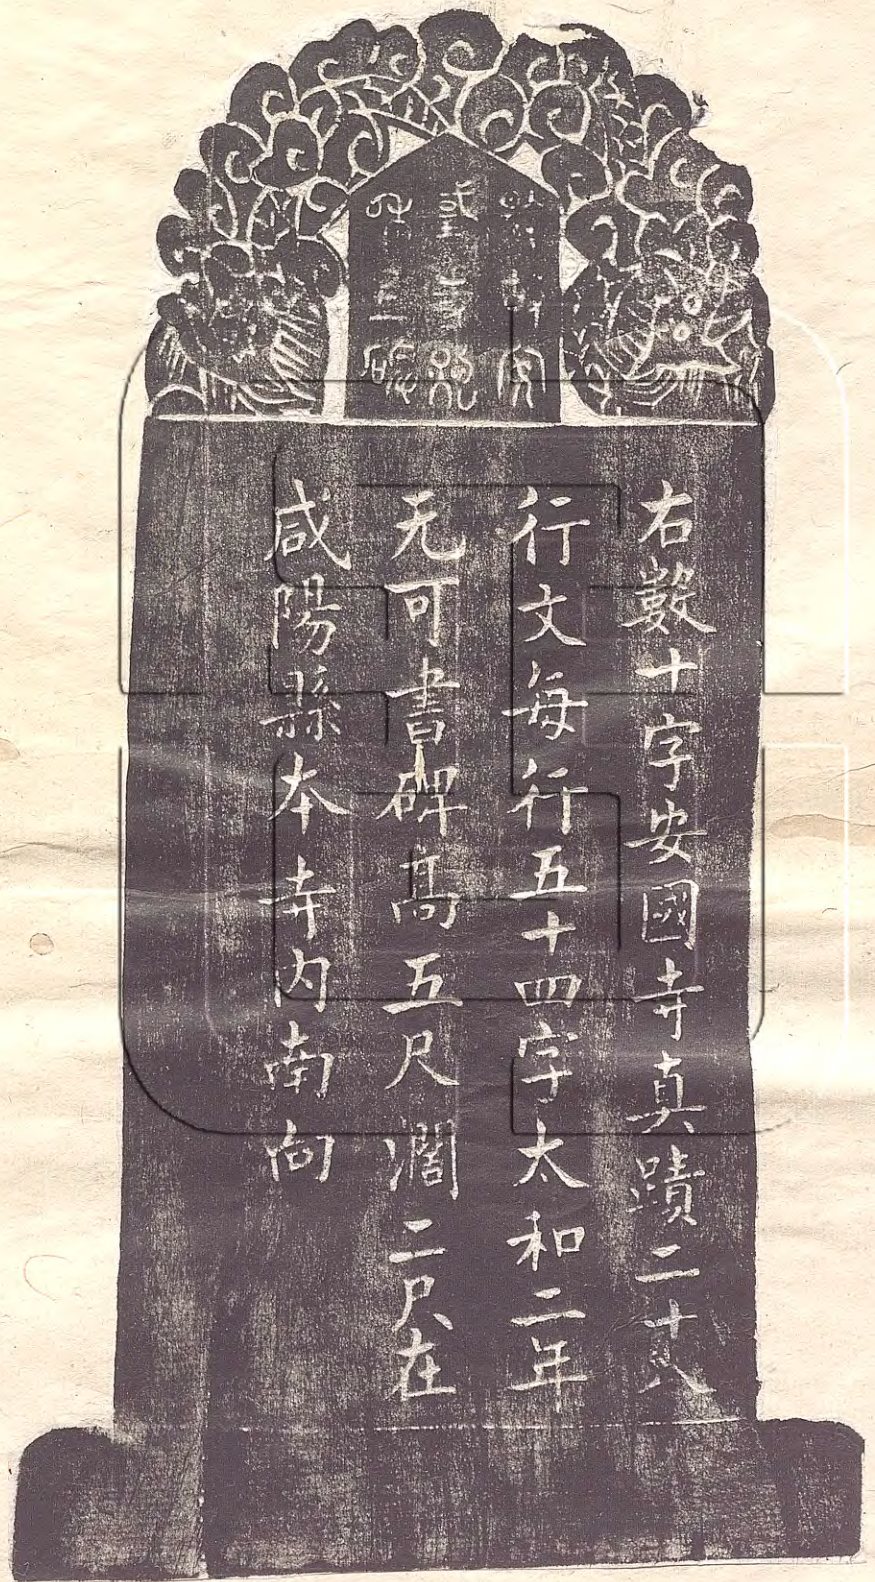 右數十字安國寺真蹟二十八
行文每行五十四字太和二年
无可書碑髙五尺濶二尺在
咸陽縣本寺内南向